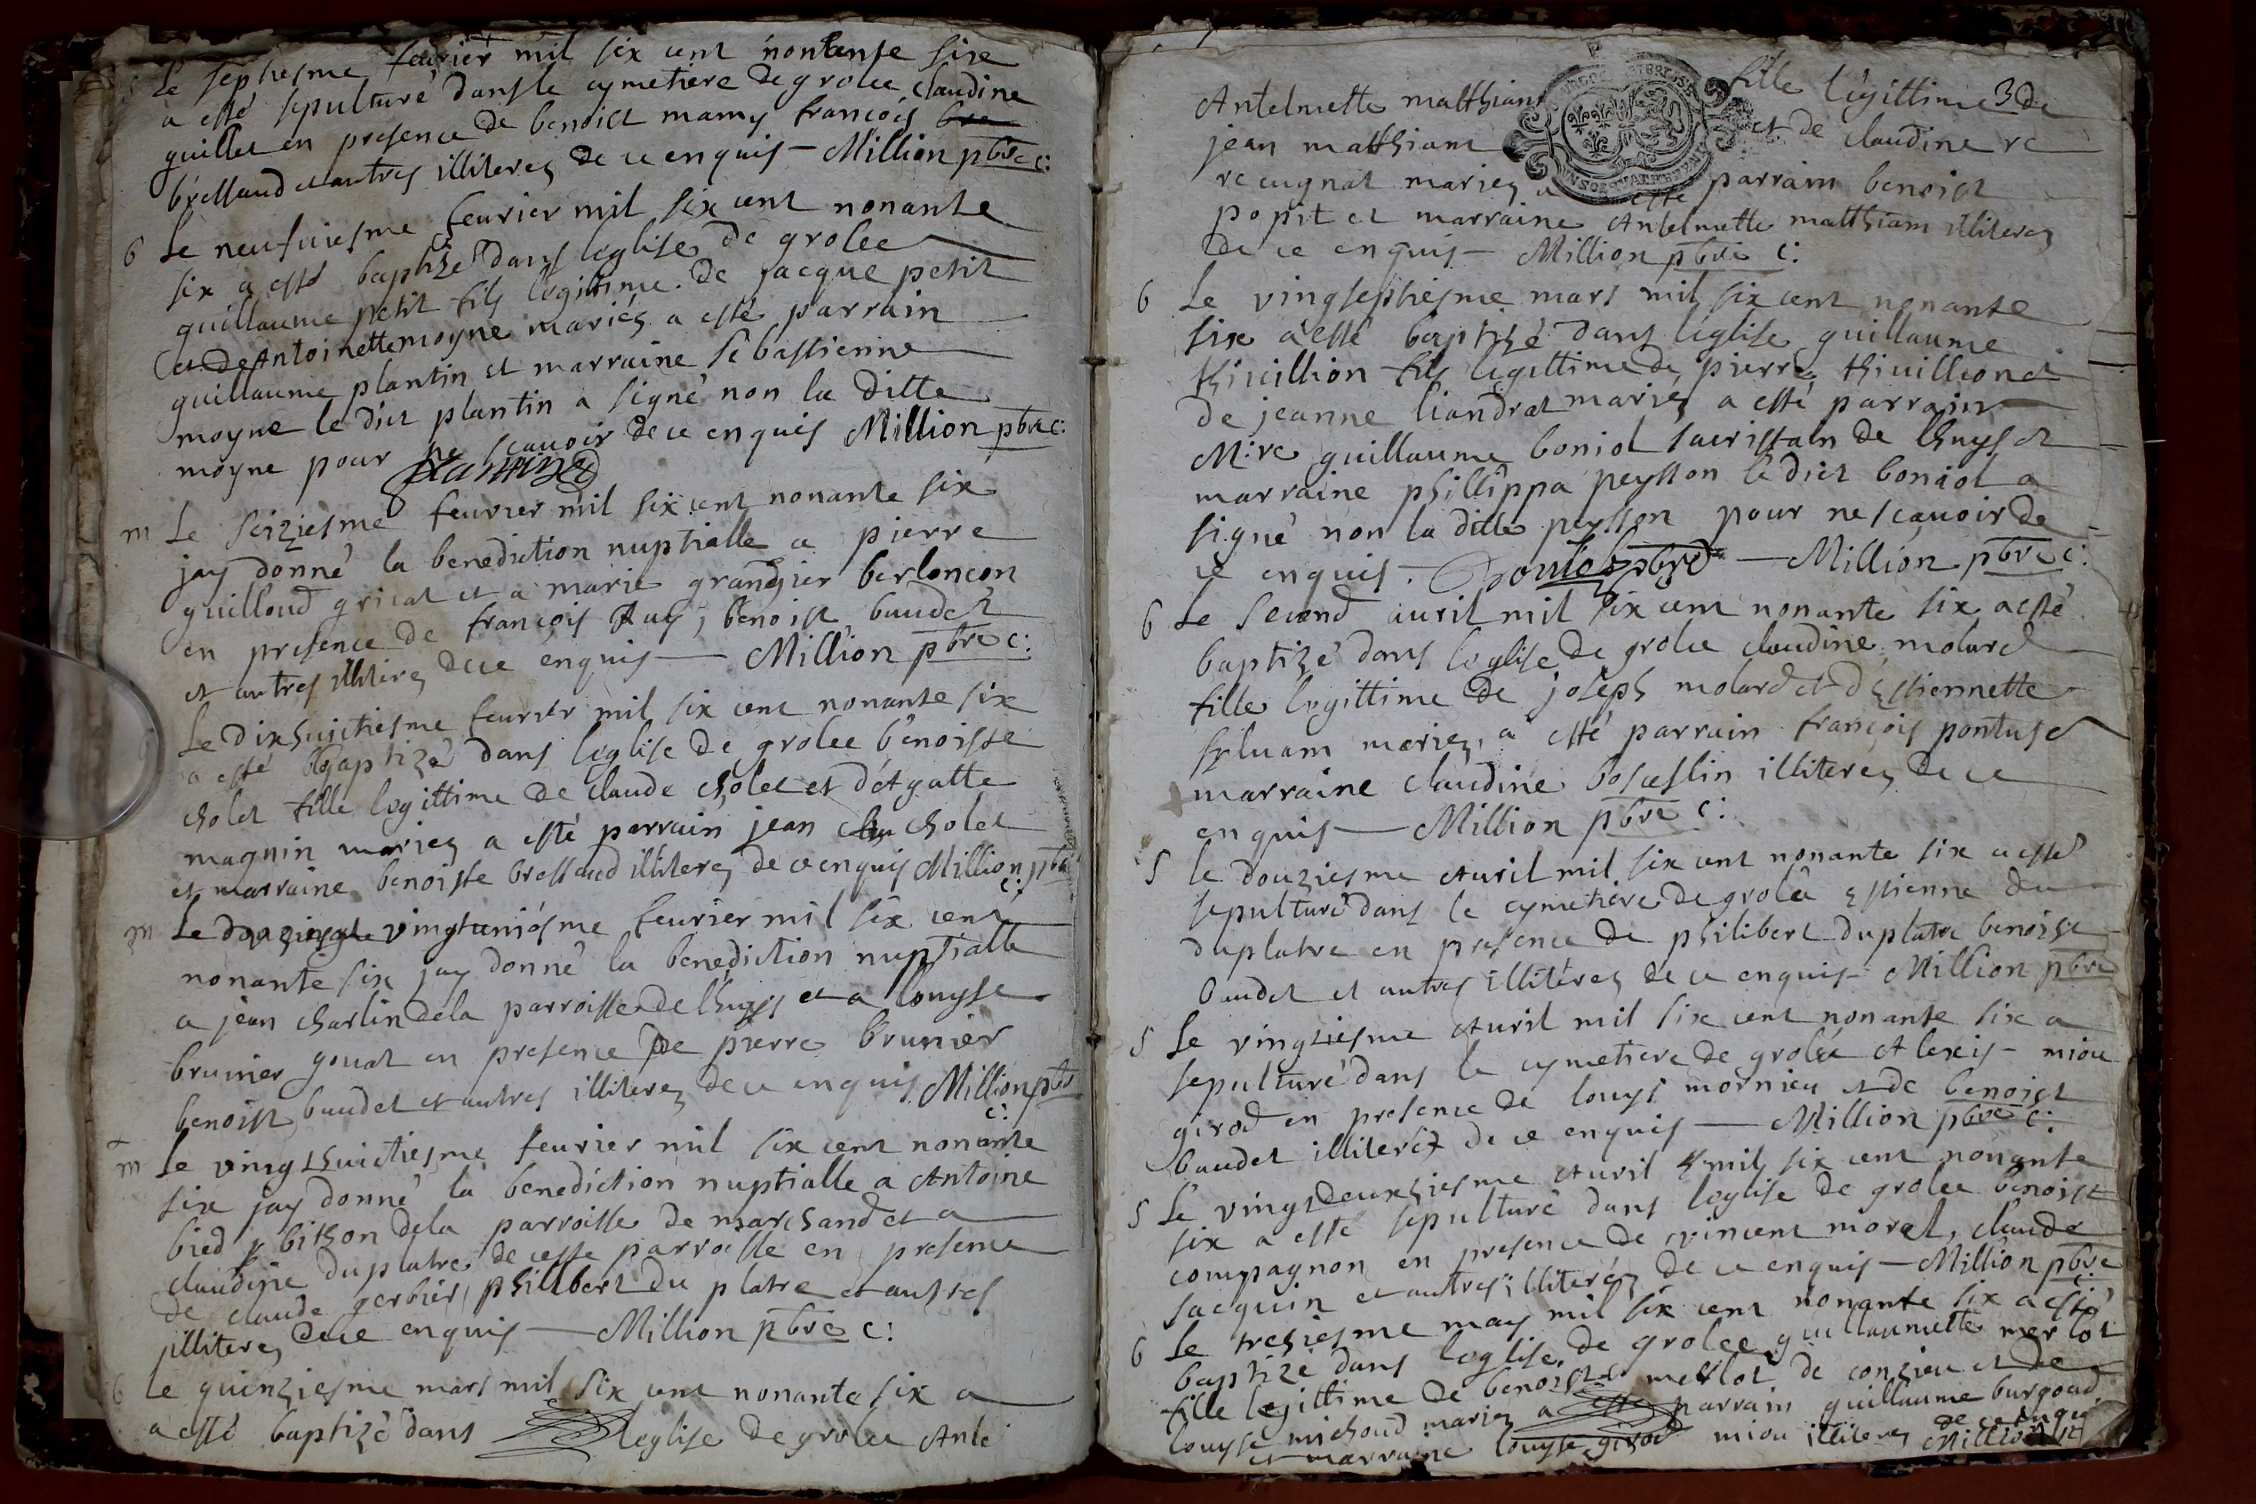 Le septiesme feurier mil six cent nonante six
a esté sepulturé dans le cymetiere de grolee claudine
guillet en presence de benoist mamy francois bre
bressaud et autres illiterez de ce enquis — Million pbre c:
b Le neufuiesme feurier mil six cent nonante
six a esté baptizé dans leglise de grolee
guillaume petit fils legitime de jacque petit
et de Antoinette moyne mariés a esté parrain
guillaume plantin et marraine sebastienne
moyne le dict plantin a signé non la ditte
moyne pour ne scauoir de ce enquis Million pbre c:
plantin
m Le seiziesme feurier mil six cent nonante six
jay donné la benediction nuptialle a pierre
guilloud griuat et a marie grangier berloncon
en presence de françois Ray, benoist baudet
et autres illiterez de ce enquis — Million pbre c:
Le dixhuictiesme feurier mil six cent nonante six
a esté baptizé dans leglise de grolee benoiste
cholet fille legittime de claude cholet et d'Agatte
magnin mariez a esté parrain jean cholet
et marraine benoiste bressaud illiterez de ce enquis Million pbre
c:
m Le vingtuniésme feurier mil six cent
nonante six jay donné la benediction nuptialle
a jean charlin dela parroisse de lhuys et a louyse
brunier gouat en presence de pierre brunier
benoist baudet et autres illiterez de ce enquis Million pbre
c:
m Le vingthuictiesme feurier mil six cent nonante
six jay donné la benediction nuptialle a Antoine
bied bithon dela parroisse de marchand et a
claudine duplatre de cette parroisse en presence
de claude gerbier, philibert du platre et autres
illiterez de ce enquis — Million pbre c:
b Le quinziesme mars mil six cent nonante six a
a esté baptizé dans leglise de grolee Ante
3
Antelmette matthiant fille legittime de
jean matthiant et de claudine re
recugnat mariez a esté parrain benoist
popit et marraine Antelmette matthiam illiterez
de ce enquis — Million pbre c:
b Le vingseptiesme mars mil six cent nonante
six a esté baptizé dans leglise guillaume
thiuillion fils legittime de pierre thiuillion et
de jeanne liandrat mariez a esté parrain
M:re guillaume boniol sacristain de lhuys et
marraine phillippa peysson le dict boniol a
signé non la ditte peysson pour ne scauoir de
ce enquis. pbre — Million pbre c:
b Le second auril mil six cent nonante six a esté
baptizé dans leglise de grolee claudine molard
fille legittime de joseph molard et d'Estiennette
syluam mariez, a esté parrain françois pontus et
marraine claudine illiterez de ce
enquis — Million pbre c:
S le douziesme Auril mil six cent nonante six a esté
sepulturé dans le cymetiere de grolée Estienne du
duplatre en presence de philibert duplatre benoist
baudet et autres illiterez de ce enquis Million pbre
S Le vingtiesme Auril mil six cent nonante six a
sepulturé dans le cymetiere de grolée Alexis miou
girod en presence de louys mornieu et de benoist
baudet illiterez de ce enquis — Million pbre c:
S Le vingtdeuxiesme Auril mil six cent nonante
six a esté sepulturé dans leglise de grolee benoist
compagnon en presence de vincent morel, claude
jacquin et autres illiterez de ce enquis — Million pbre
c:
b Le tresiesme may mil six cent nonante six a esté
baptizé dans leglise de grolee guillaumette merlot
fille legittime de benoist merlot de conzieu et de
louyse michoud mariez a esté parrain guillaume burgoud
et marraine louyse girod miou illiterez de ce enquis
Million pbre